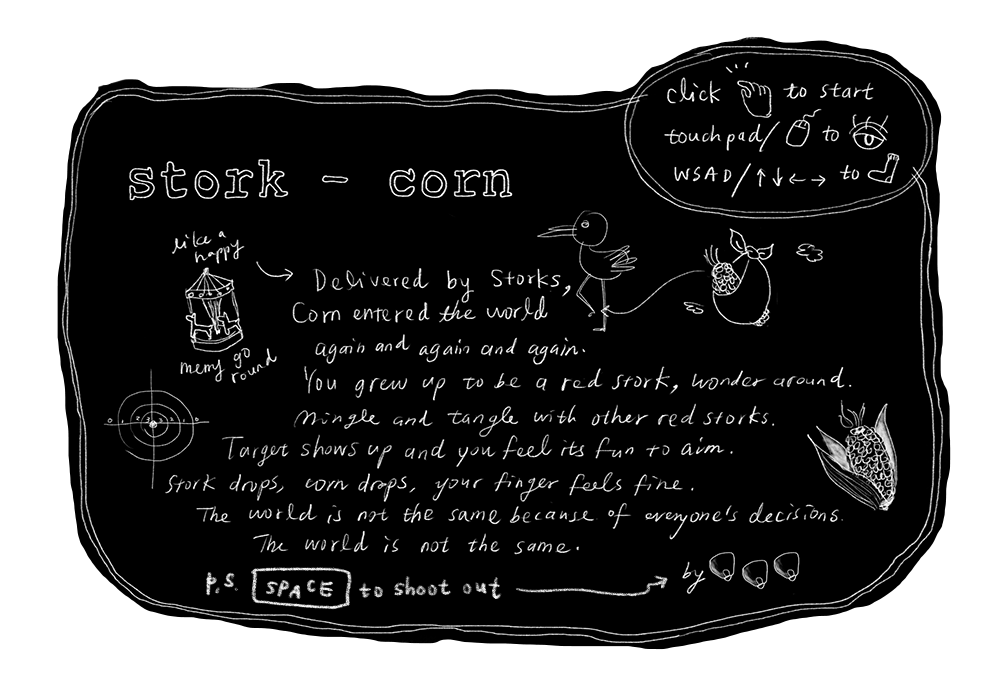 click to start
touchpad/ to
WSAD/↑↓←→ to
stork - corn
like a
happy
merry go
round
Delivered by Storks,
Corn entered the world
again and again and again.
You grew up to be a red stork, wonder around.
Mingle and tangle with other red storks.
Target shows up and you feel its fun to aim.
Stork drops, corn drops, your finger feels fine.
The world is not the same because of everyone's decisions.
The world is not the same.
p.s. SPACE to shoot out
by